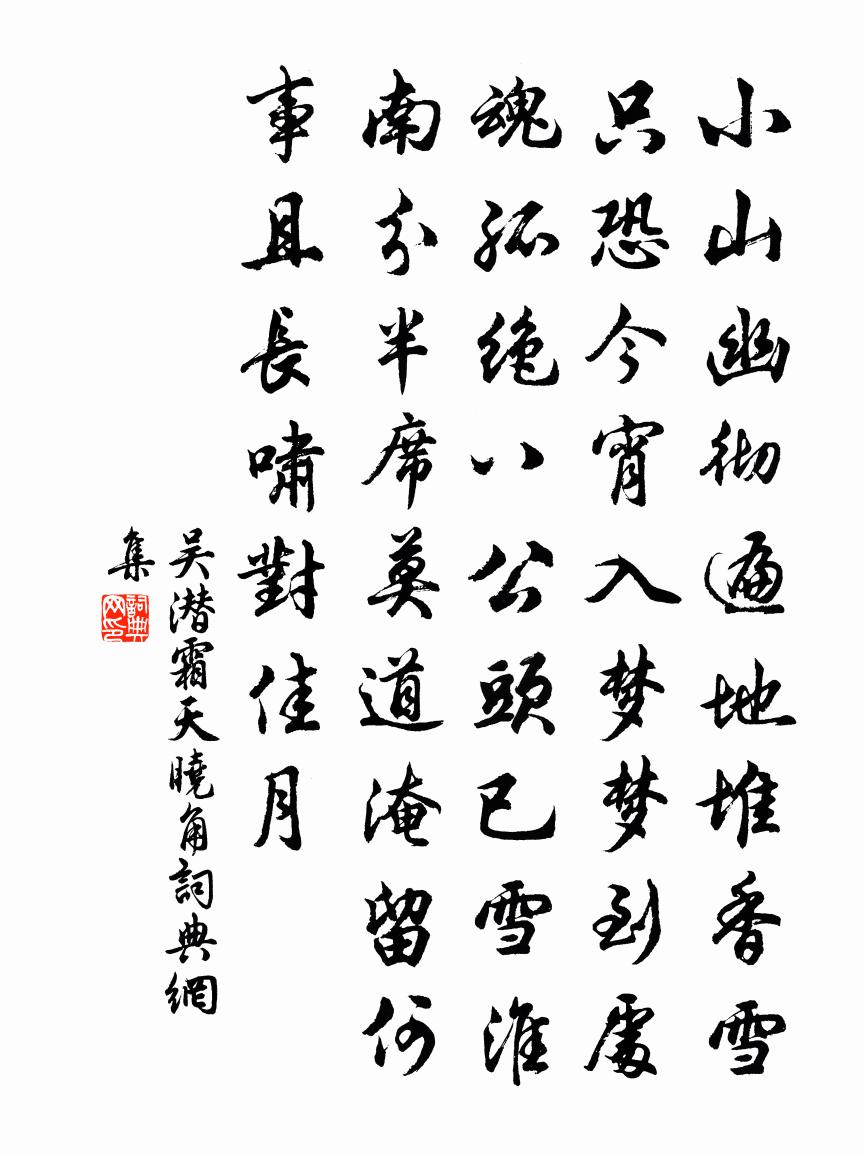 小山幽彻遍地堆香雪
只恐今宵入梦梦到處
魂孤绝八公頭已雪淮
南分半席莫道淹留何
事且長啸對佳月
吴潜霜天曉角詞典網
集
詞典网印